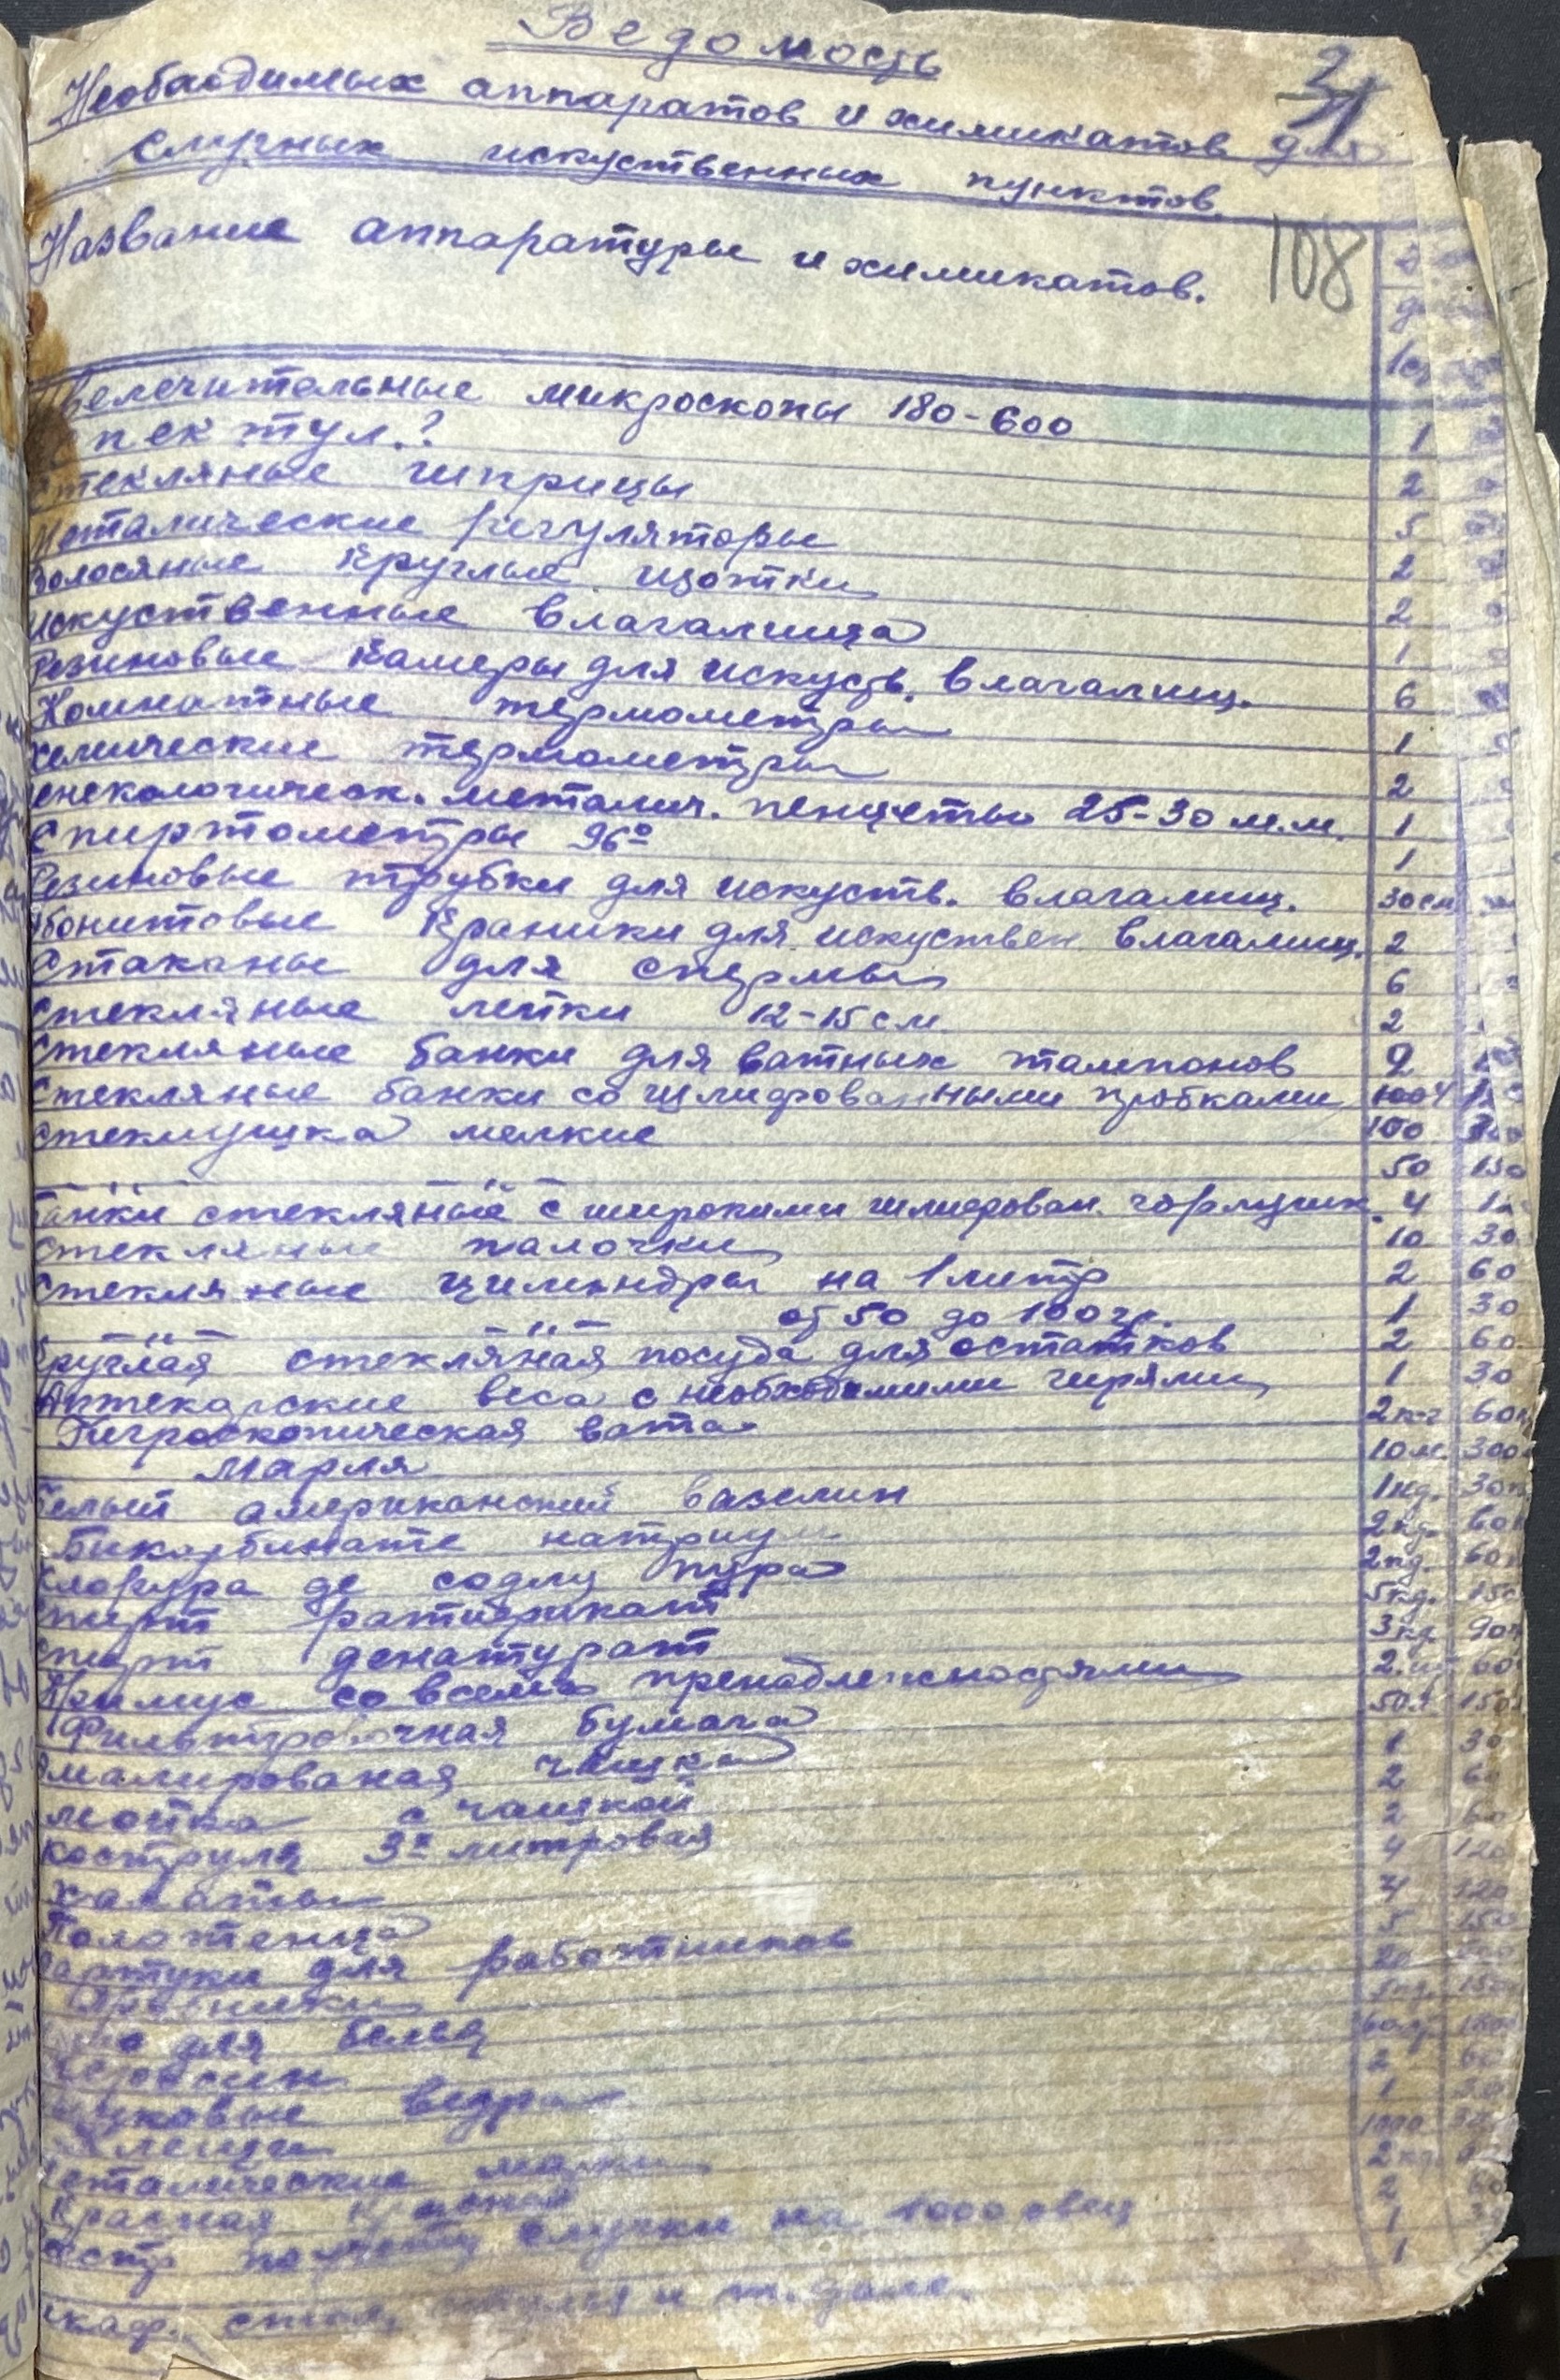 Ведомость
31
Необходимых аппаратов и химикатов для
случных искуственных пунктов.
Название аппаратуры и химикатов.
108
1ст
Увеличительные микроскопы 180-600 1
Спектул.? 2
Стекляные шприцы 5
Металические регуляторы 2
Волосяные круглые щотки 2
Искуственные влагалища 1
Резиновые камеры для искусть. влагалищ. 6
Комнатные термометры 1
Химические термометры 2
Генекологическ. металич. пенцеты 25-30 м.м. 1
Спиртометры 96° 1
Резиновые трубки для искуств. влагалищ. 30 см
Эбонитовые краники для искуствен влагалищ. 2
Стаканы для спермы 6
Стекляные лейки 12-15 см 2
Стекляные банки для ватных тампонов 2
Стекляные банки со шлифованными пробками 4
Стеклушка мелкие 100
50 150
Банки стекляные с широкими шлифован. горлушк. 4
Стекляные палочки 10 30
Стекляные цилендры на 1 литр 2 60
от 50 до 100 гр. 1 30
Круглая стекляная посуда для остатков 2 60
Аптекарские веса с необходимими гирями 1 30
Гигроскопическая вата 2 кг 60
Марля 10 м. 300
Белый американский вазелин 1 кг. 30
Бикарбинате натриум 2 кг. 60
Хлорура де содиу пура 2 кг. 60
Спирт ратификат 5 кг. 150
Спирт денатурат 3 кг 90
Примус со всеми пренадлежностями 2. 60
Фильтровочная бумага 50 150
Эмалированая чашка 1 30
Мойка с чашкой 2 60
Кострула 3х литровая 2 60
Халаты 4 120
Полотенца 4 120
Фартуки для работников 5 150
20
для белья
Керосин
Цинковые ведра 2 60
1 30
Металические марки 1000
Красная 2 кг
случки на 1000 овец 2 60
1
Шкаф. стол, стулья и т. дале. 1